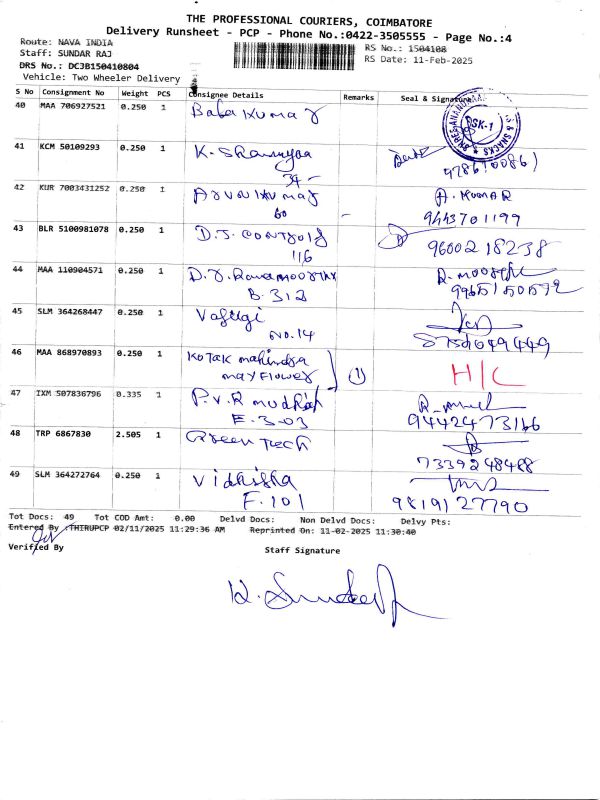 THE PROFESSIONAL COURIERS, COIMBATORE
Delivery Runsheet - PCP - Phone No.:0422-3505555 - Page No.:4
Route: NAVA INDIA
RS No.: 1504108
Staff: SUNDAR RAJ
RS Date: 11-Feb-2025
DRS No.: DCJB150410804
Vehicle: Two Wheeler Delivery
S No Consignment No Weight PCS Consignee Details Remarks Seal & Signature
40 MAA 706927521 0.250 1 Baba Kumar
SK-1
& SNACKS
41 KCM 50109293 0.250 1 K.
34 -
42 KUR 7003431252 0.250 1 Arunkumar A. KUMAR
60 - 9443701199
43 BLR 5100981078 0.250 1 D.J. controls 9600218238
116
44 MAA 110904571 0.250 1 D.J.
B. 312 9965150592
45 SLM 364268447 0.250 1
NO.14 8754049449
46 MAA 868970893 0.250 1 Kotak mahindra
mayflower 1 H/C
47 IXM 507836796 0.335 1 P.V.R
E-303 9442473166
48 TRP 6867830 2.505 1 Green Tech
7339248488
49 SLM 364272764 0.250 1 Vidhisha
F.101 9819127790
Tot Docs: 49 Tot COD Amt: 0.00 Delvd Docs: Non Delvd Docs: Delvy Pts:
Entered By :THIRUPCP 02/11/2025 11:29:36 AM Reprinted On: 11-02-2025 11:30:40
Verified By Staff Signature